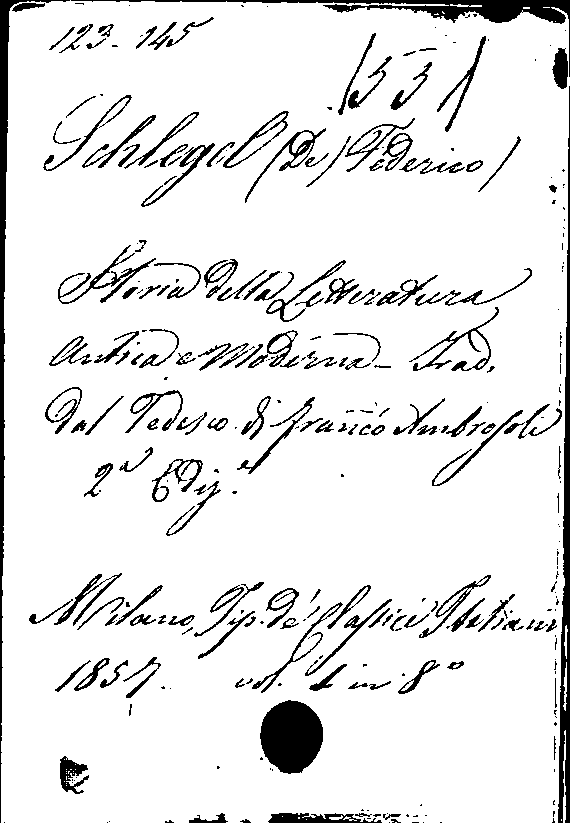 123-145
(53)
Schlegel (De) Federico)
Storia della Letteratura
antica e Moderna - Trad.
dal Tedesco di Franco Ambrosoli
2a Ediz.e
Milano, Tip. de' Classici Italiani
1857. vol. 1 in 8o